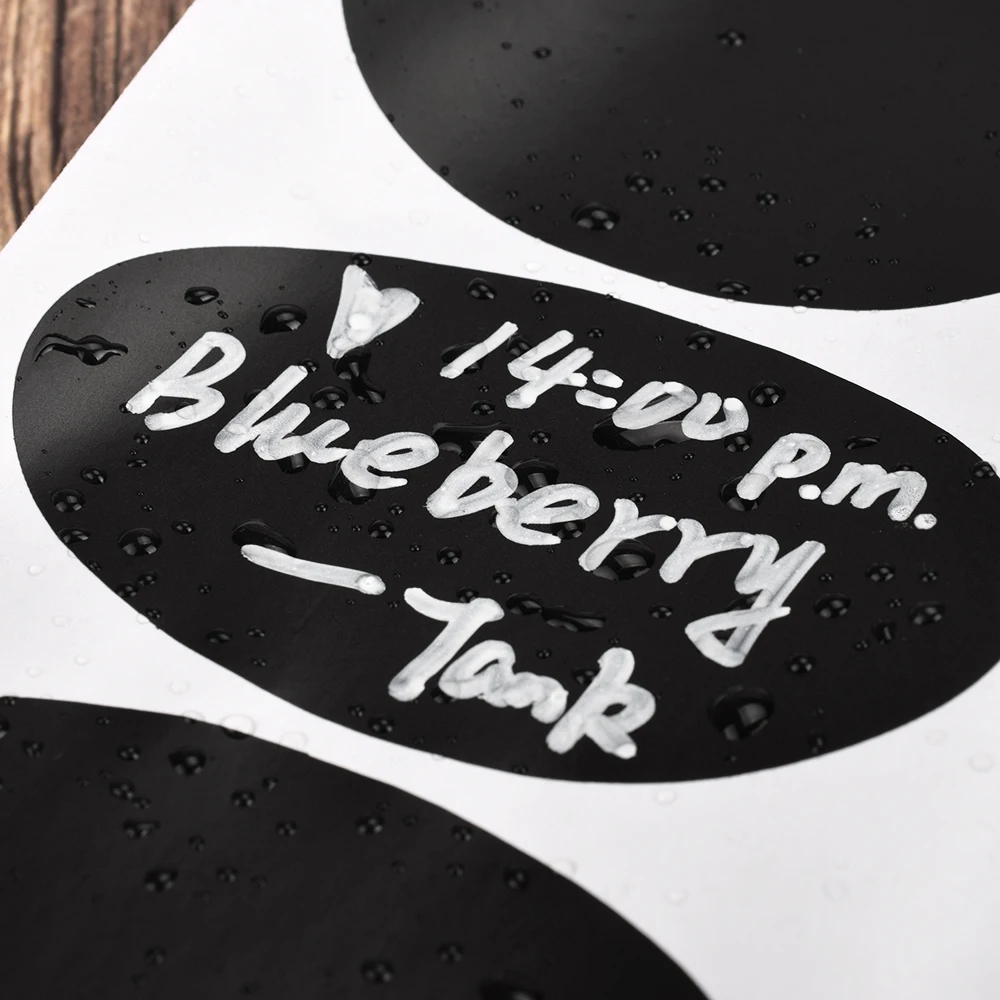 ♥ 14:00 p.m.
Blueberry
— Tank